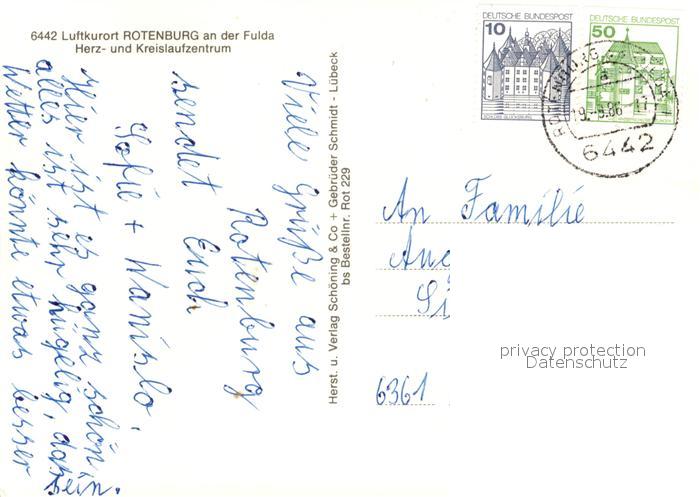 6442 Luftkurort ROTENBURG an der Fulda
Herz- und Kreislaufzentrum
Viele Grüße aus
Rotenburg
sendet Euch
Sofie +
Hier ist es ganz schön,
alles ist sehr hügelig, das
Wetter könnte etwas besser
sein.
Herst. u. Verlag Schöning & Co + Gebrüder Schmidt - Lübeck
bs Bestellnr. Rot 229
DEUTSCHE BUNDESPOST
10
SCHLOSS GLÜCKSBURG
DEUTSCHE BUNDESPOST
50
6442
An Familie
6361
privacy protection
Datenschutz